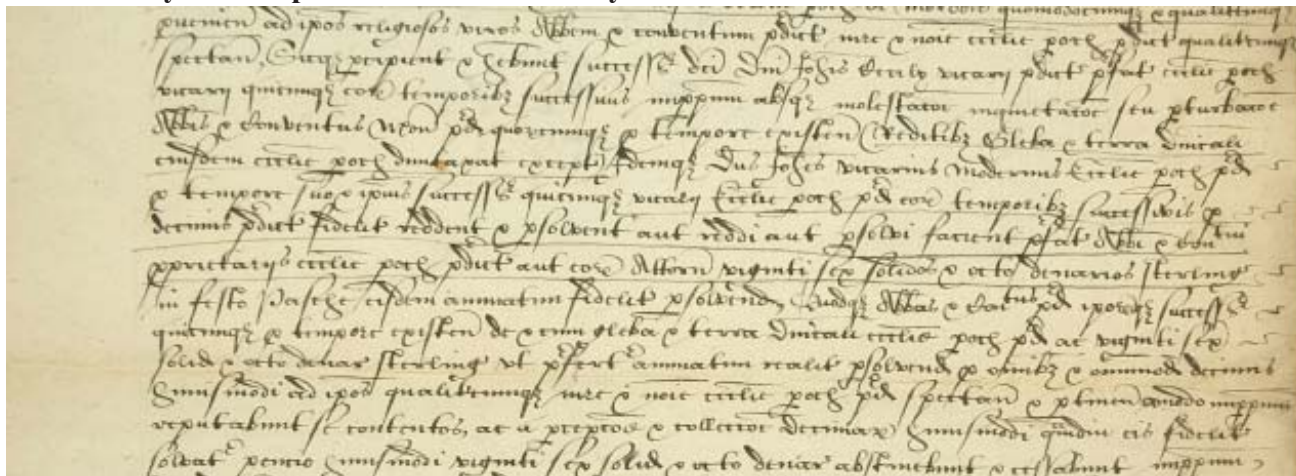 quomodocumqȝ & qualitercumqȝ
ad ip̄os religiosos viros Abb̄em & conventum p̄dict iure & no̅ie eccl̄ie poch p̄dict qualit̄cumqȝ
spectan̄, Sicqȝ p̄cipient & h̄ebunt successor̄ dc̄i Dn̄i Joh̄is vicarij p̄dict p̄fat eccl̄ie poch
vicarij quicumqȝ eor̄ temporibȝ successiuis imppm̄ absqȝ molestac̄oe inquietac̄oe seu pturbac̄oe
Abb̄is & Conventus p̄d quorumcumqȝ p tempore existen̄ Redditibȝ Gleba & terra Dn̄icali
eiusdem eccl̄ie poch dumtaxat except̄, Idemqȝ Dn̄s Joh̄es vicarius modernus Eccl̄ie poch p̄d
p tempore suo & ip̄ius successor̄ quicumqȝ vicarij Eccl̄ie poch p̄d eor̄ temporibȝ successivis p
decimis p̄dict fidelit̄ reddent & psolvent aut reddi aut psolvi facient p̄fat Abbi & Conventui
pprietarijs eccl̄ie poch p̄dict aut eor̄ Attorn̄ viginti sex solidos & octo denarios sterling
in festo Pasche eisdem annuatim fidelit̄ psolvend, Quodqȝ Abbas & Conventus p̄d ip̄orqȝ successor̄
quicumqȝ p tempore existen̄ de & cum gleba & terra Dn̄icali eccl̄ie poch p̄d ac viginti sex
solid & octo denar sterling vt p̄fert̄ annuatim realit̄ psolvend p om̄ibȝ & om̄imod decimis
huiusmodi ad ip̄os qualit̄cumqȝ iure & no̅ie eccl̄ie poch p̄d spectan̄ & ptinen̄ amodo imppm̄
reputabunt se contentos, ac a pcepc̄oe & collecc̄oe decimar̄ huiusmodi q̄mdiu eis fidelit̄
solvat̄ pencio huiusmodi viginti sex solid & octo denar abstinebunt & cessabunt imppm̄